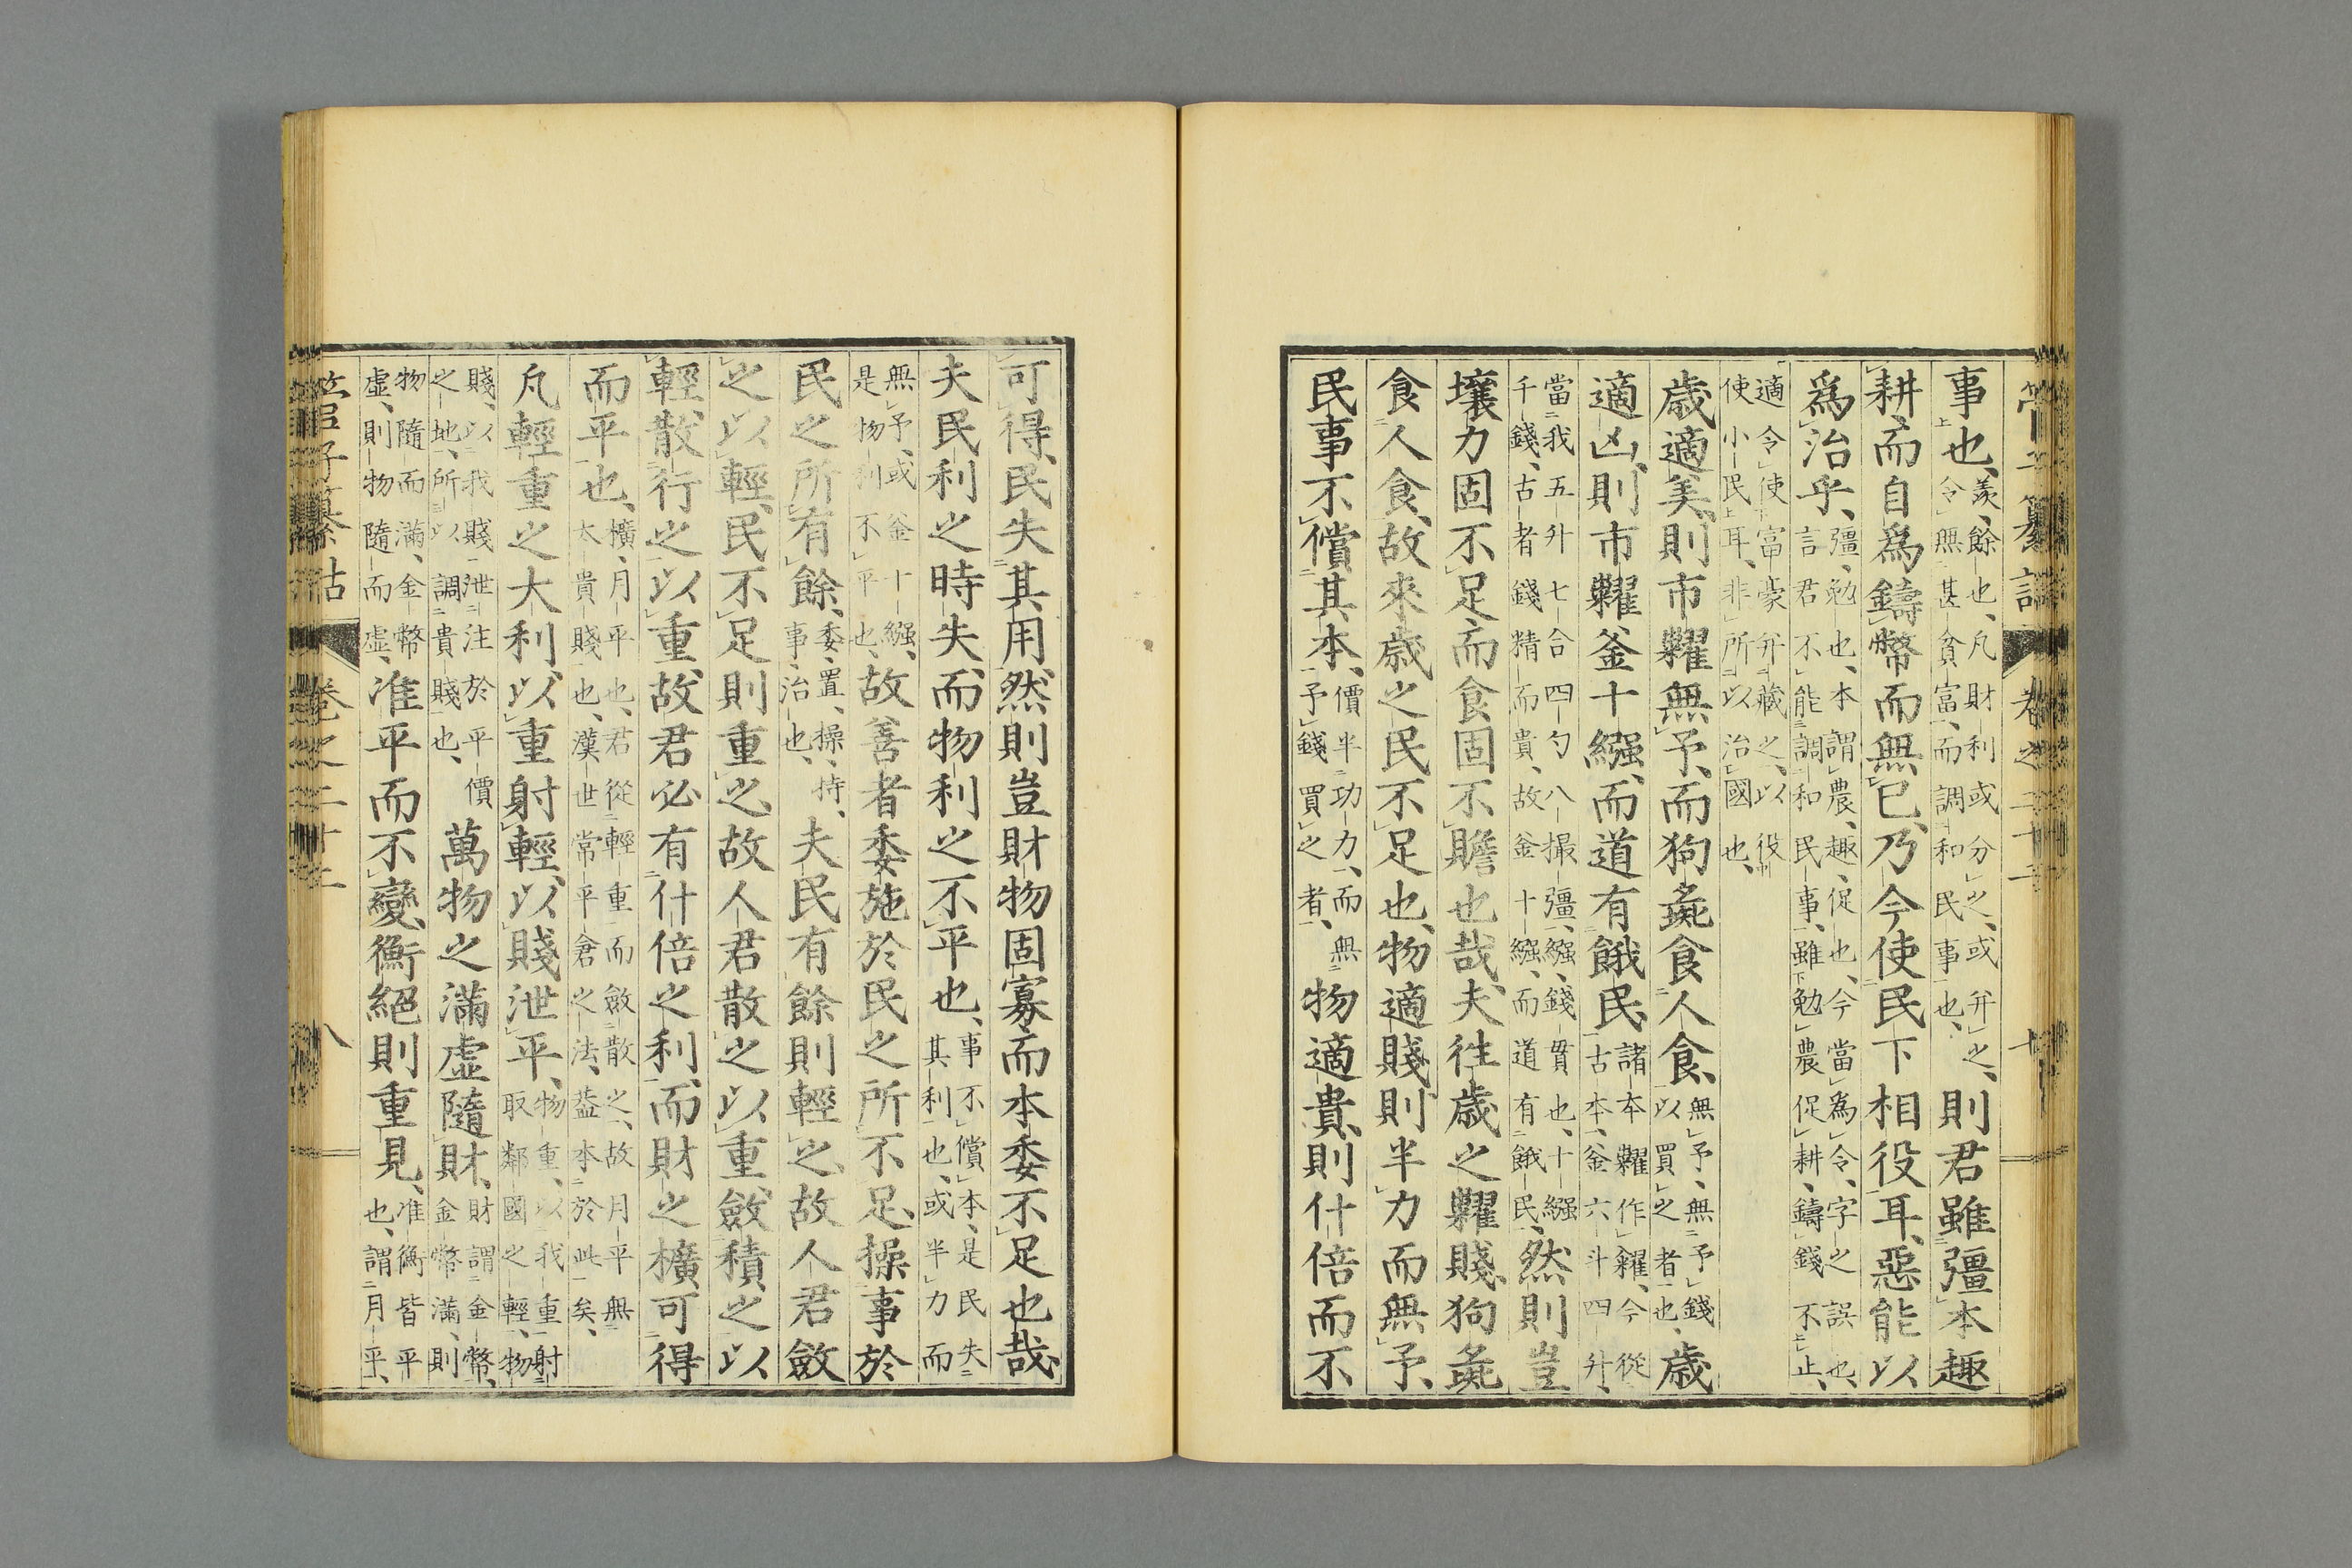 管子纂詁　卷之二十二　十
事也、羨、餘也、凡財利或分之、或幷之、令無甚貧富、而調和民事也、則君雖彊本趣
耕、而自爲鑄幣而無已、乃今使民下相役耳、惡能以
爲治乎、彊、勉也、本謂農、趣、促也、今當爲令、字之誤也、言君不能調和民事、雖勉農促耕、鑄錢不止、
適令使富豪幷藏之、以役使小民耳、非所以治國也、
歲適美、則市糶無予、而狗彘食人食、無予、無予錢以買之者也、歲
適凶、則市糶釜十繦、而道有餓民、諸本糶作糴、今從古本、釜六斗四升、
當我五升七合四勺八撮彊、繦、錢貫也、十繦千錢、古者錢精而貴、故釜十繦、而道有餓民、然則豈
壤力固不足、而食固不贍也哉、夫徃歲之糶賤、狗彘
食人食、故來歲之民不足也、物適賤、則半力而無予、
民事不償其本、價半功力、而無予錢買之者、物適貴、則什倍而不
可得、民失其用、然則豈財物固寡、而本委不足也哉、
夫民利之時失、而物利之不平也、事不償本、是民失其利也、或半力而
無予、或釜十繦、是物利不平也、故善者委施於民之所不足、操事於
民之所有餘、委、置、操、持、事、治也、夫民有餘則輕之、故人君斂
之以輕、民不足則重之、故人君散之以重、斂積之以
輕、散行之以重、故君必有什倍之利、而財之櫎、可得
而平也、櫎、月平也、君從輕重而斂散之、故月平無太貴賤也、漢世常平倉之法、蓋本於此矣、
凡輕重之大利、以重射輕、以賤泄平、物重、以我重射取鄰國之輕、物
賤、以我賤泄注於平價之地、所以調貴賤也、萬物之滿虛隨財、財謂金幣、金幣滿、則
物隨而滿、金幣虛、則物隨而虛、准平而不變、衡絕則重見、准衡皆平也、謂月平、
管子纂詁　卷之二十二　八